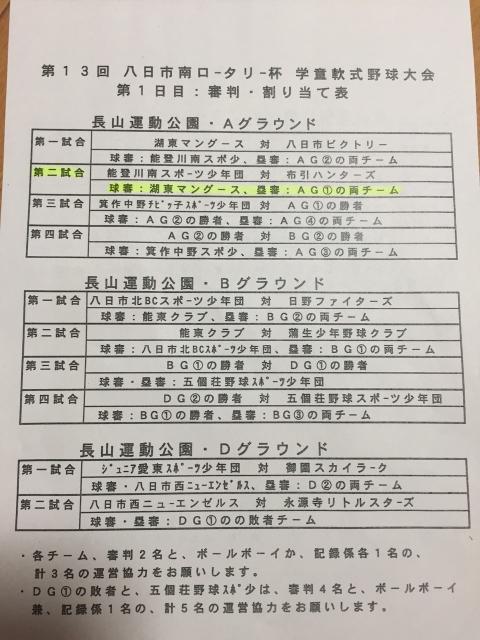 第１３回 八日市南ロ-タリ-杯 学童軟式野球大会
第１日目：審判・割り当て表
長山運動公園・Ａグラウンド
第一試合 湖東マングース 対 八日市ビクトリー
球審：能登川南スポ少、塁審：ＡＧ②の両チーム
第二試合 能登川南スポーツ少年団 対 布引ハンターズ
球審：湖東マングース、塁審：ＡＧ①の両チーム
第三試合 箕作中野ﾁﾋﾞｯ子ｽﾎﾟｰﾂ少年団 対 ＡＧ①の勝者
球審：ＡＧ②の勝者、塁審：ＡＧ④の両チーム
第四試合 ＡＧ②の勝者 対 ＢＧ②の勝者
球審：箕作中野スポ少、塁審：ＡＧ③の両チーム
長山運動公園・Ｂグラウンド
第一試合 八日市北BCスポーツ少年団 対 日野ファイターズ
球審：能東クラブ、塁審：ＢＧ②の両チーム
第二試合 能東クラブ 対 蒲生少年野球クラブ
球審：八日市北BCｽﾎﾟｰﾂ少年団、塁審：ＢＧ①の両チーム
第三試合 ＢＧ①の勝者 対 ＤＧ①の勝者
球審・塁審：五個荘野球ｽﾎﾟｰﾂ少年団
第四試合 ＤＧ②の勝者 対 五個荘野球スポーツ少年団
球審：ＢＧ①の勝者、塁審：ＢＧ③の両チーム
長山運動公園・Ｄグラウンド
第一試合 ｼﾞｭﾆｱ愛東ｽﾎﾟｰﾂ少年団 対 御園スカイラーク
球審・八日市西ﾆｭｰｴﾝｾﾞﾙｽ、塁審：Ｄ②の両チーム
第二試合 八日市西ニューエンゼルス 対 永源寺リトルスターズ
球審・塁審：ＤＧ①のの敗者チーム
・各チーム、審判２名と、ボールボーイか、記録係各１名の、
計３名の運営協力をお願いします。
・ＤＧ①の敗者と、五個荘野球ｽﾎﾟ少は、審判４名と、ボールボーイ
兼、記録係１名の、計５名の運営協力をお願いします。